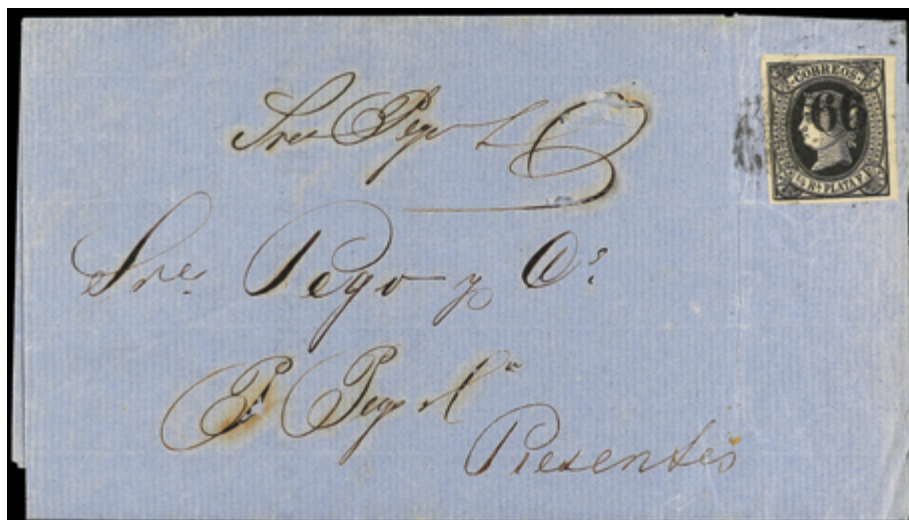 CORREOS
66
¼ Rl PLATA F.
Sres Pego
Sres. Pego y Ca.
P. Pego
Presentes